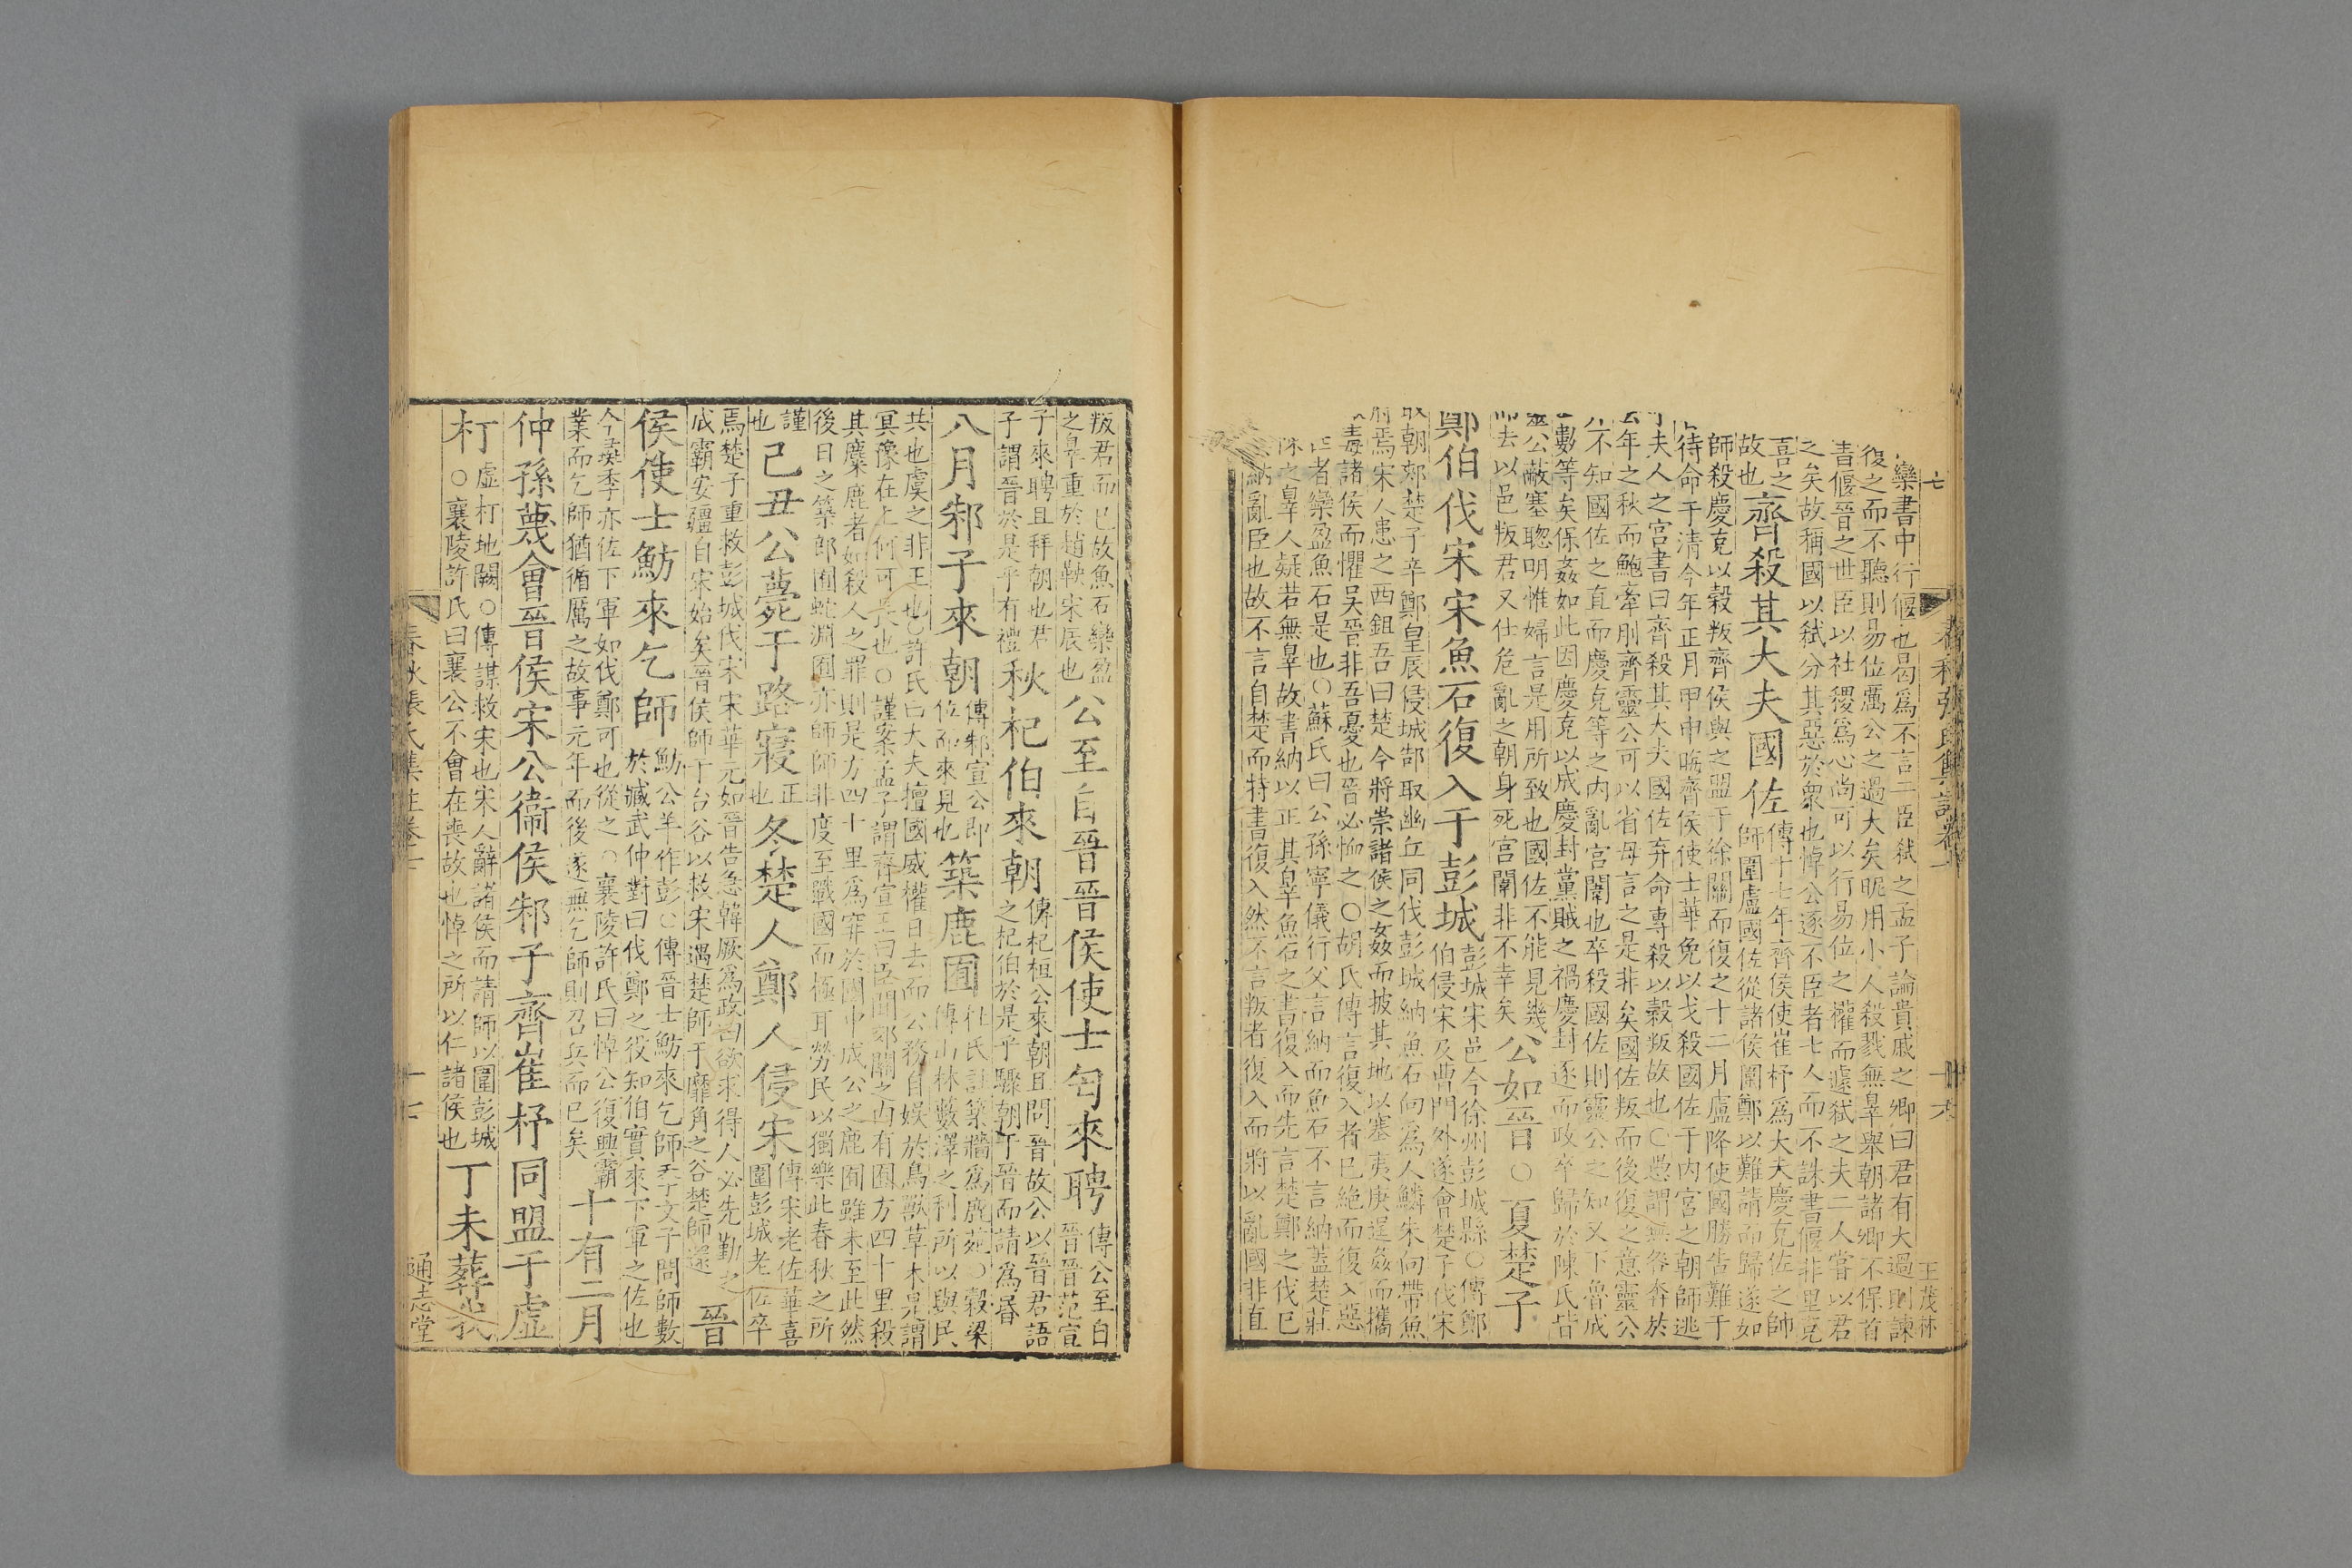 欒書中行偃也曷爲不言二臣弑之孟子論貴戚之卿曰君有大過則諫
復之而不聽則易位厲公之過大矣昵用小人殺戮無辠舉朝諸卿不保首
書偃晉之世臣以社稷爲心尚可以行易位之權而遽弑之夫二人嘗以君
之矣故稱國以弑分其惡於衆也悼公逐不臣者七人而不誅書偃非里克
喜之
故也
齊殺其大夫國佐
傳十七年齊侯使崔杼爲大夫慶克佐之帥
師圍盧國佐從諸侯圍鄭以難請而歸遂如
師殺慶克以穀叛齊侯與之盟于徐關而復之十二月盧降使國勝告難于
待命于清今年正月甲申晦齊侯使士華免以戈殺國佐于内宮之朝師逃
夫人之宮書曰齊殺其大夫國佐弃命專殺以穀叛故也○愚謂無咎奔於
年之秋而鮑牽刖齊靈公可以省母言之是非矣國佐叛而後復之意靈公
不知國佐之直而慶克等之内亂宮闈也卒殺國佐則靈公之知又下魯成
數等矣保姦如此因慶克以成慶封黨賊之禍慶封逐而政卒歸於陳氏皆
靈公蔽塞聦明惟婦言是用所致也國佐不能見幾
而去以邑叛君又仕危亂之朝身死宮闈非不幸矣
公如晉○夏楚子
鄭伯伐宋宋魚石復入于彭城
彭城宋邑今徐州彭城縣○傳鄭
伯侵宋及曹門外遂會楚子伐宋
取朝郟楚子辛鄭皇辰侵城郜取幽丘同伐彭城納魚石向爲人鱗朱向帶魚
府焉宋人患之西鉏吾曰楚今將崇諸侯之姦而披其地以塞夷庚逞姦而攜
毒諸侯而懼吳晉非吾憂也晉必恤之○胡氏傳言復入者已絶而復入惡
者欒盈魚石是也○蘇氏曰公孫寧儀行父言納而魚石不言納蓋楚莊
陳之辠人疑若無辠故書納以正其辠魚石之書復入而先言楚鄭之伐已
納亂臣也故不言自楚而特書復入然不言叛者復入而將以亂國非直
叛君而已故魚石欒盈
之辠重於趙鞅宋辰也
公至自晉晉侯使士匄來聘
傳公至自
晉晉范宣
子來聘且拜朝也君
子謂晉於是乎有禮
秋杞伯來朝
傳杞桓公來朝且問晉故公以晉君語
之杞伯於是乎驟朝于晉而請爲昏
八月邾子來朝
傳邾宣公即
位而來見也
築鹿囿
杜氏註築牆爲鹿苑○穀梁
傳山林藪澤之利所以與民
共也虞之非正也○許氏曰大夫擅國威權日去而公務自娛於鳥獸草木是謂
冥豫在上何可長也○謹案孟子謂齊宣王曰臣聞郊關之内有囿方四十里殺
其麋鹿者如殺人之罪則是方四十里爲穽於國中成公之鹿囿雖未至此然
後日之築郎囿蛇淵囿亦師師非度至戰國而極耳勞民以獨樂此春秋之所
謹
也
己丑公薨于路寢
正
也
冬楚人鄭人侵宋
傳宋老佐華喜
圍彭城老佐卒
焉楚子重救彭城伐宋宋華元如晉告急韓厥爲政曰欲求得人必先勤之
成霸安疆自宋始矣晉侯師于台谷以救宋遇楚師于靡角之谷楚師還
晉
侯使士魴來乞師
魴公羊作彭○傳晉士魴來乞師季文子問師數
於臧武仲對曰伐鄭之役知伯實來下軍之佐也
今彘季亦佐下軍如伐鄭可也從之○襄陵許氏曰悼公復興霸
業而乞師猶循厲之故事元年而後遂無乞師則召兵而已矣
十有二月
仲孫蔑會晉侯宋公衞侯邾子齊崔杼同盟于虛
朾
虛朾地闕○傳謀救宋也宋人辭諸侯而請師以圍彭城
○襄陵許氏曰襄公不會在喪故也悼之所以仁諸侯也
丁未葬我
春秋張氏集註卷七
十七
通志堂